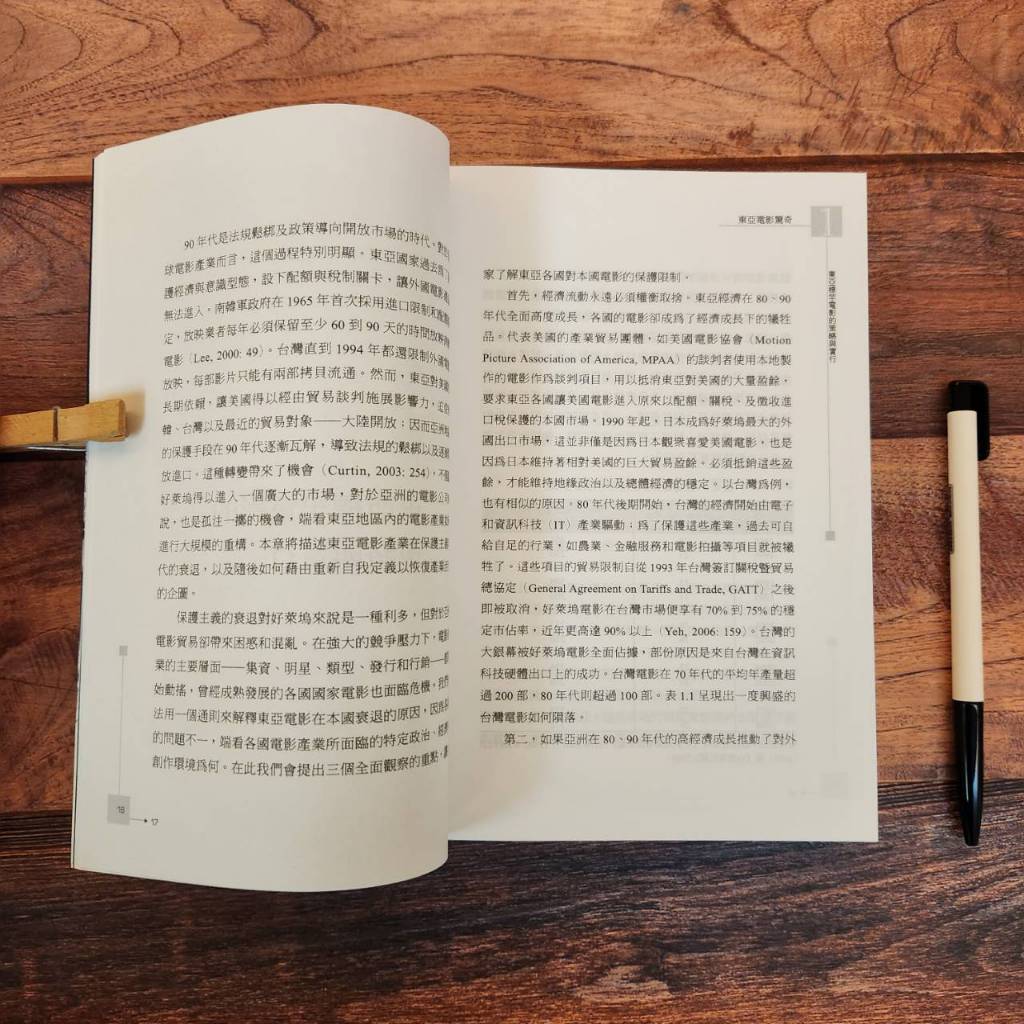 90 年代是法規鬆綁及政策導向開放市場的時代。對
球電影產業而言，這個過程特別明顯。東亞國家過去
護經濟與意識型態，設下配額與稅制關卡，讓外國電影
無法進入，南韓軍政府在 1965 年首次採用進口限制和配
定，放映業者每年必須保留至少 60 到 90 天的時間放映
電影（Lee, 2000: 49）。台灣直到 1994 年都還限制外國
放映，每部影片只能有兩部拷貝流通。然而，東亞對美
長期依賴，讓美國得以經由貿易談判施展影響力，
韓、台灣以及最近的貿易對象——大陸開放；因而亞洲
的保護手段在 90 年代逐漸瓦解，導致法規的鬆綁以及逐
放進口。這種轉變帶來了機會（Curtin, 2003: 254），不
好萊塢得以進入一個廣大的市場，對於亞洲的電影公
說，也是孤注一擲的機會，端看東亞地區內的電影產業
進行大規模的重構。本章將描述東亞電影產業在保護主
代的衰退，以及隨後如何藉由重新自我定義以恢復產業
的企圖。
保護主義的衰退對好萊塢來說是一種利多，但對於
電影貿易卻帶來困惑和混亂。在強大的競爭壓力下，電
業的主要層面——集資、明星、類型、發行和行銷——
始動搖，曾經成熟發展的各國國家電影也面臨危機。我
法用一個通則來解釋東亞電影在本國衰退的原因，因
的問題不一，端看各國電影產業所面臨的特定政治、經
創作環境為何。在此我們會提出三個全面觀察的重點，
16
17
東亞電影驚奇
1
東亞標竿電影的策略與實行
家了解東亞各國對本國電影的保護限制。
首先，經濟流動永遠必須權衡取捨。東亞經濟在 80、90
年代全面高度成長，各國的電影卻成為了經濟成長下的犧牲
品。代表美國的產業貿易團體，如美國電影協會（Motion
Picture Association of America, MPAA）的談判者使用本地製
作的電影作為談判項目，用以抵消東亞對美國的大量盈餘，
要求東亞各國讓美國電影進入原來以配額、關稅、及徵收進
口稅保護的本國市場。1990 年起，日本成為好萊塢最大的外
國出口市場，這並非僅是因為日本觀眾喜愛美國電影，也是
因為日本維持著相對美國的巨大貿易盈餘，必須抵銷這些盈
餘，才能維持地緣政治以及總體經濟的穩定。以台灣為例，
也有相似的原因。80 年代後期開始，台灣的經濟開始由電子
和資訊科技（IT）產業驅動；為了保護這些產業，過去可自
給自足的行業，如農業、金融服務和電影拍攝等項目就被犧
牲了。這些項目的貿易限制自從 1993 年台灣簽訂關稅暨貿易
總協定（General Agreement on Tariffs and Trade, GATT）之後
即被取消，好萊塢電影在台灣市場便享有 70% 到 75% 的穩
定市佔率，近年更高達 90% 以上（Yeh, 2006: 159）。台灣的
大銀幕被好萊塢電影全面佔據，部份原因是來自台灣在資訊
科技硬體出口上的成功。台灣電影在 70 年代的平均年產量超
過 200 部，80 年代則超過 100 部。表 1.1 呈現出一度興盛的
台灣電影如何隕落。
第二，如果亞洲在 80、90 年代的高經濟成長推動了對外